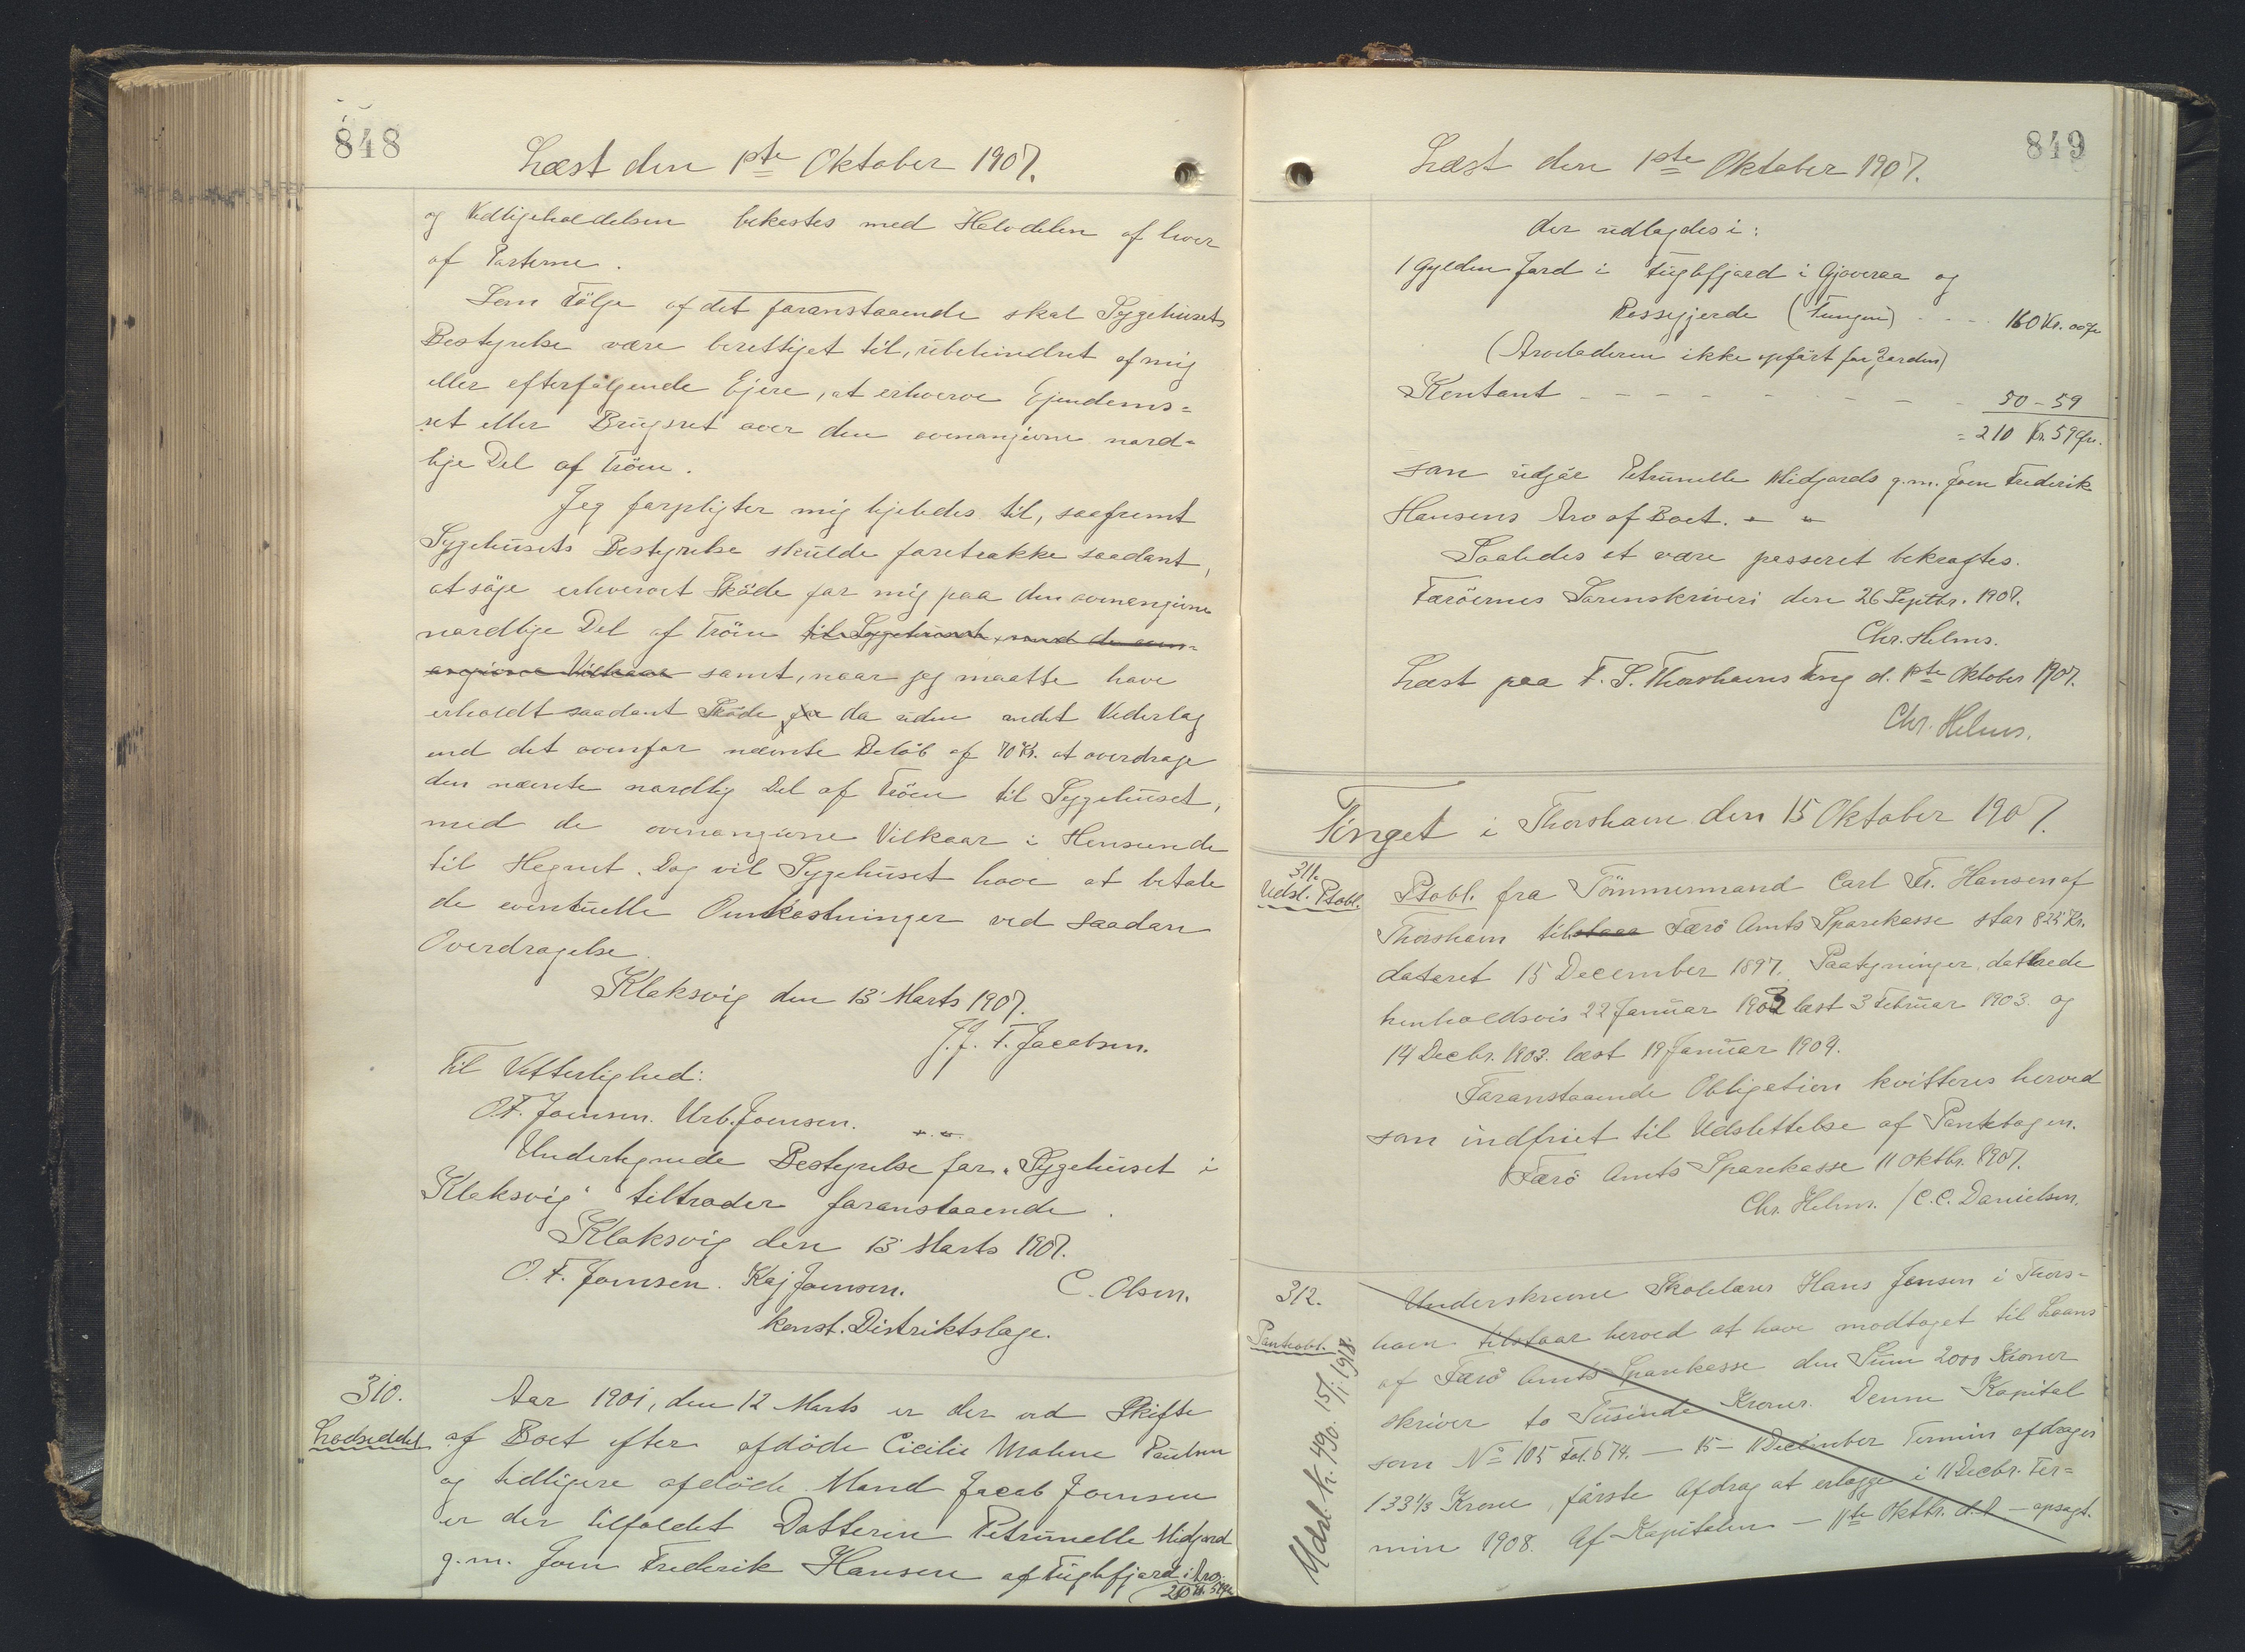 848
Læst den 1ste Oktober 1907.
og Vedligeholdelsen bekostes med Halvdelen af hver
af Parterne.
Som Følge af det foranstaaende skal Sygehusets
Bestyrelse være berettiget til, ubehindret af mig
eller efterfølgende Ejere, at erhverve Ejendoms=
ret eller Brugsret over den ovenangivne nord=
lige Del af Tröen.
Jeg forpligter mig ligeledes til, saafremt
Sygehusets Bestyrelse skulde foretrække saadant,
at søge erhvervet Skøde for mig paa den ovenangivne
nordlige Del af Tröen til Sygehuset, med de oven=
angivne Vilkaar samt, naar jeg maatte have
erholdt saadant Skøde da uden andet Vederlag
end det ovenfor nævnte Beløb af 70 Kr. at overdrage
den nævnte nordlig Del af Tröen til Sygehuset,
med de ovenangivne Vilkaar i Henseende
til Hegnet. Dog vil Sygehuset have at betale
de eventuelle Omkostninger ved saadan
Overdragelse.
Klaksvig den 13 Marts 1907.
J. J. F. Jacobsen.
Til Vitterlighed:
O. F. Joensen. Urb. Joensen.
Undertegnede Bestyrelse for "Sygehuset i
Klaksvig" tiltræder foranstaaende.
Klaksvig den 13 Marts 1907.
O. F. Joensen. Kaj Joensen. C. Olsen.
konst. Distriktslæge.
310.
Lodseddel
Aar 1901, den 12 Marts er der ved Skifte
af Boet efter afdøde Cicilie Malene Poulsen
og tidligere afdøde Mand Jacob Joensen
er der tilfaldet Datteren Petrunelle Midjord
g. m. Joen Frederik Hansen af Fuglefjord i Arv:
210 Kr. 59 Øre
849
Læst den 1ste Oktober 1907.
der udlagdes i:
1 Gylden Jord i Fuglefjord i Gjoveraa og
Rossegjerde (Tungen) - - - 160 Kr. 00 Øre
(Arveladeren ikke opført for Jorden)
Kontant - - - - - - - - - 50 - 59
= 210 Kr. 59 Øre.
som udgør Petrunelle Midjords g. m. Joen Frederik
Hansens Arv af Boet.
Saaledes at være passeret bekræftes.
Færøernes Sorenskriveri den 26 Septbr. 1907.
Chr. Helms.
Læst paa F. S. Thorshavns Ting d. 1ste Oktober 1907.
Chr. Helms.
Tinget i Thorshavn den 15 Oktober 1907.
311.
Udsl. Ptobl.
Ptobl. fra Tömmermand Carl Fr. Hansen af
Thorshavn tilstaar Færø Amts Sparekasse stor 825 Kr.
dateret 15 December 1897. Paategninger, daterede
henholdsvis 22 Januar 1903 læst 3 Februar 1903. og
14 Decbr. 1903. læst 19 Januar 1904.
Foranstaaende Obligation kvitteres herved
som indfriet til Udslettelse af Pantebogen.
Færø Amts Sparekasse 11 Oktbr. 1907.
Chr. Helms. / C. C. Danielsen.
312.
Panteobl.
Udsl. Nr. 490. 15/1. 1918.
Underskrevne Skolelærer Hans Jensen i Thors=
havn tilstaar herved at have modtaget til Laans
af Færø Amts Sparekasse den Sum 2000 Kroner
skriver to Tusinde Kroner. Denne Kapital
som No 105 Fol. 674. - 15 - 11 December Termin afdrages
133 1/3 Krone, første Afdrag at erlægge i 11 Decbr. Ter=
min 1908. Af Kapitalen - 11te Oktbr. d. A. - opsagt.